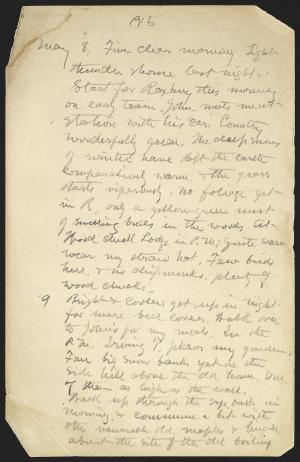 1916
May 8, Fine clear morning, Light
thunder shower last night.
Start for Roxbury this morning
on early train. John meets me at
station with his car. Country
wonderfully green. The deep snows
of winter have left the earth
comparatively warm & the grass
starts vigorously. No foliage yet
in R. only a yellow-green mist
of swelling buds in the woods. At
Wood chuck Lodge in P.M; quite warm
wear my straw hat. Few birds
here, & no chipmunks. plenty of
wood chucks.
9 Bright & cooler; got up in night
for more bed covers. Walk over
to John's for my meals. In the
P.M. Irving P. plows my garden.
Four big snow banks yet on the
side hill above the old home. One
of them as high as the wall.
Walk up through the sap bush in
morning, & commune a bit with
the venerable old maples & linger
about the site of the old boiling